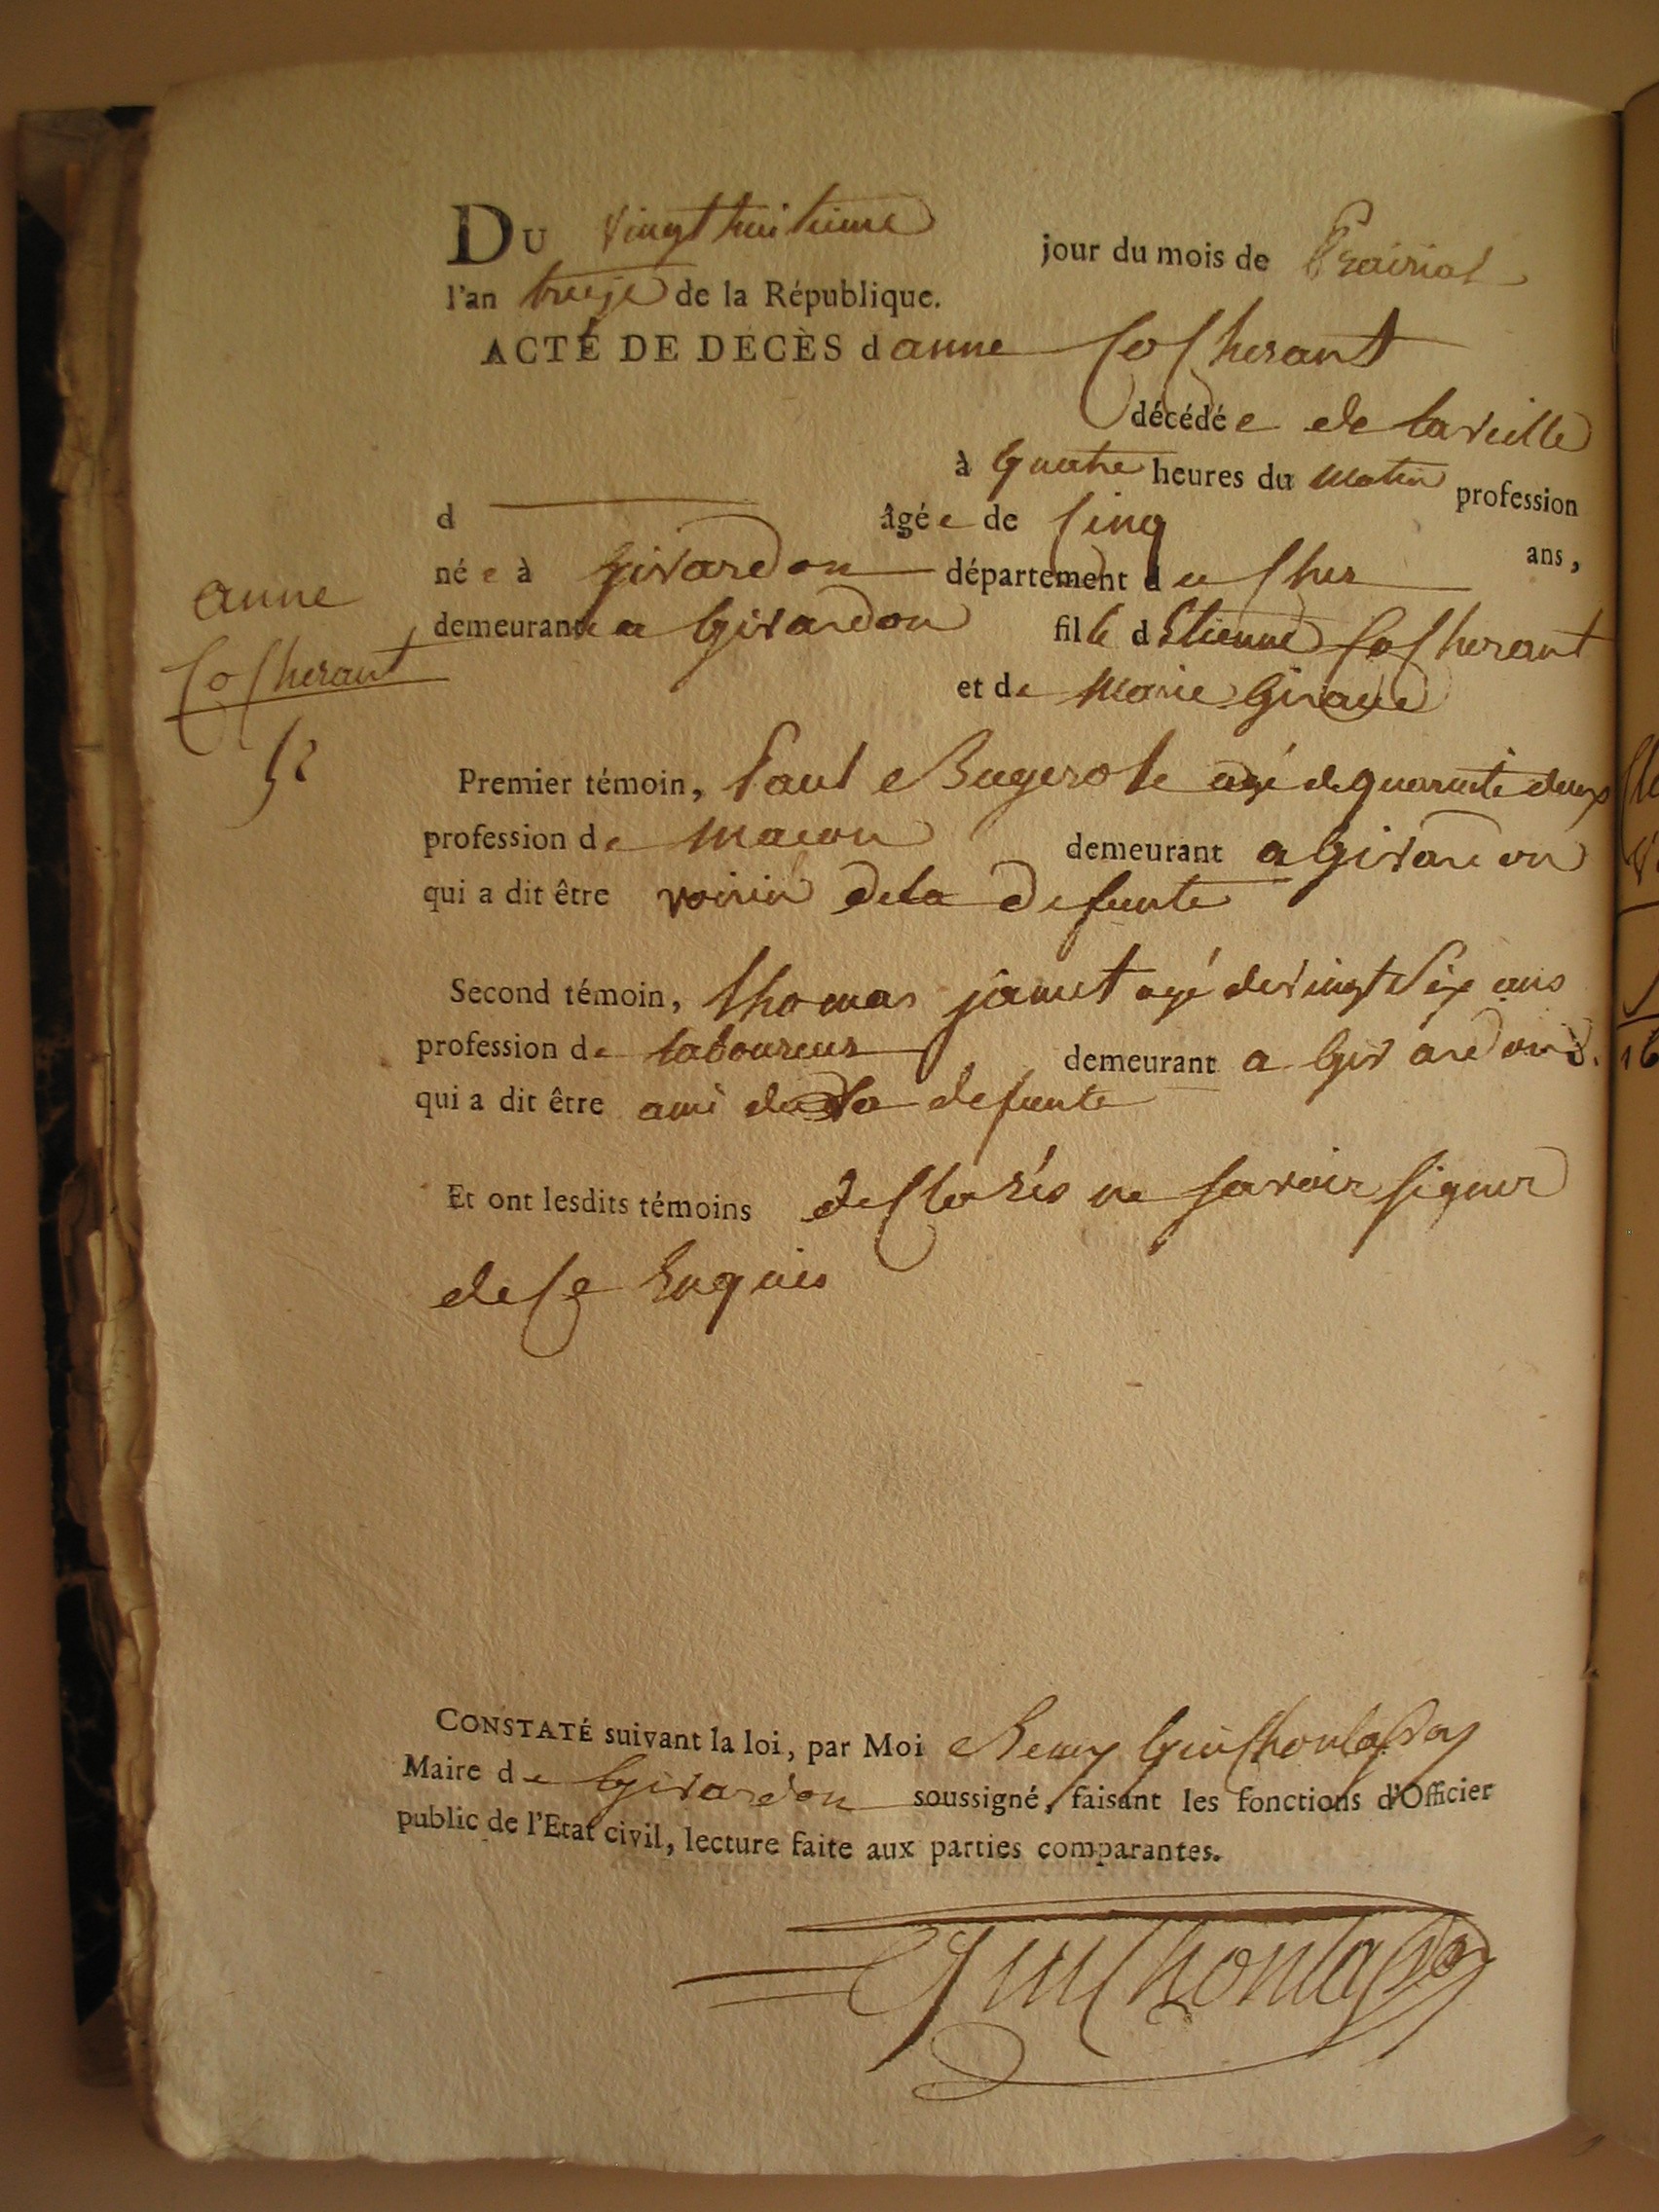 DU vingt huitieme jour du mois de Prairial
l'an treize de la République.
ACTE DE DÉCÈS d anne Cocherant
décédée de la veille
à quatre heures du matin profession
d âgée de cinq ans,
née à givardon département du Cher
demeurante a givardon fille d Etienne Cocherant
et de Marie giraud
anne
Cocherant
Premier témoin, Paul Bugerole agé de quarante deux
profession de macon demeurant a givardon
qui a dit être voisin dela defunte
Second témoin, thomas jamet agé de vingt six ans
profession de laboureur demeurant a givardon
qui a dit être ami de la defunte
Et ont lesdits témoins declarés ne savoir signer
de ce Enquis
CONSTATÉ suivant la loi, par Moi Remy
Maire de givardon soussigné, faisant les fonctions d'Officier
public de l'Etat civil, lecture faite aux parties comparantes.